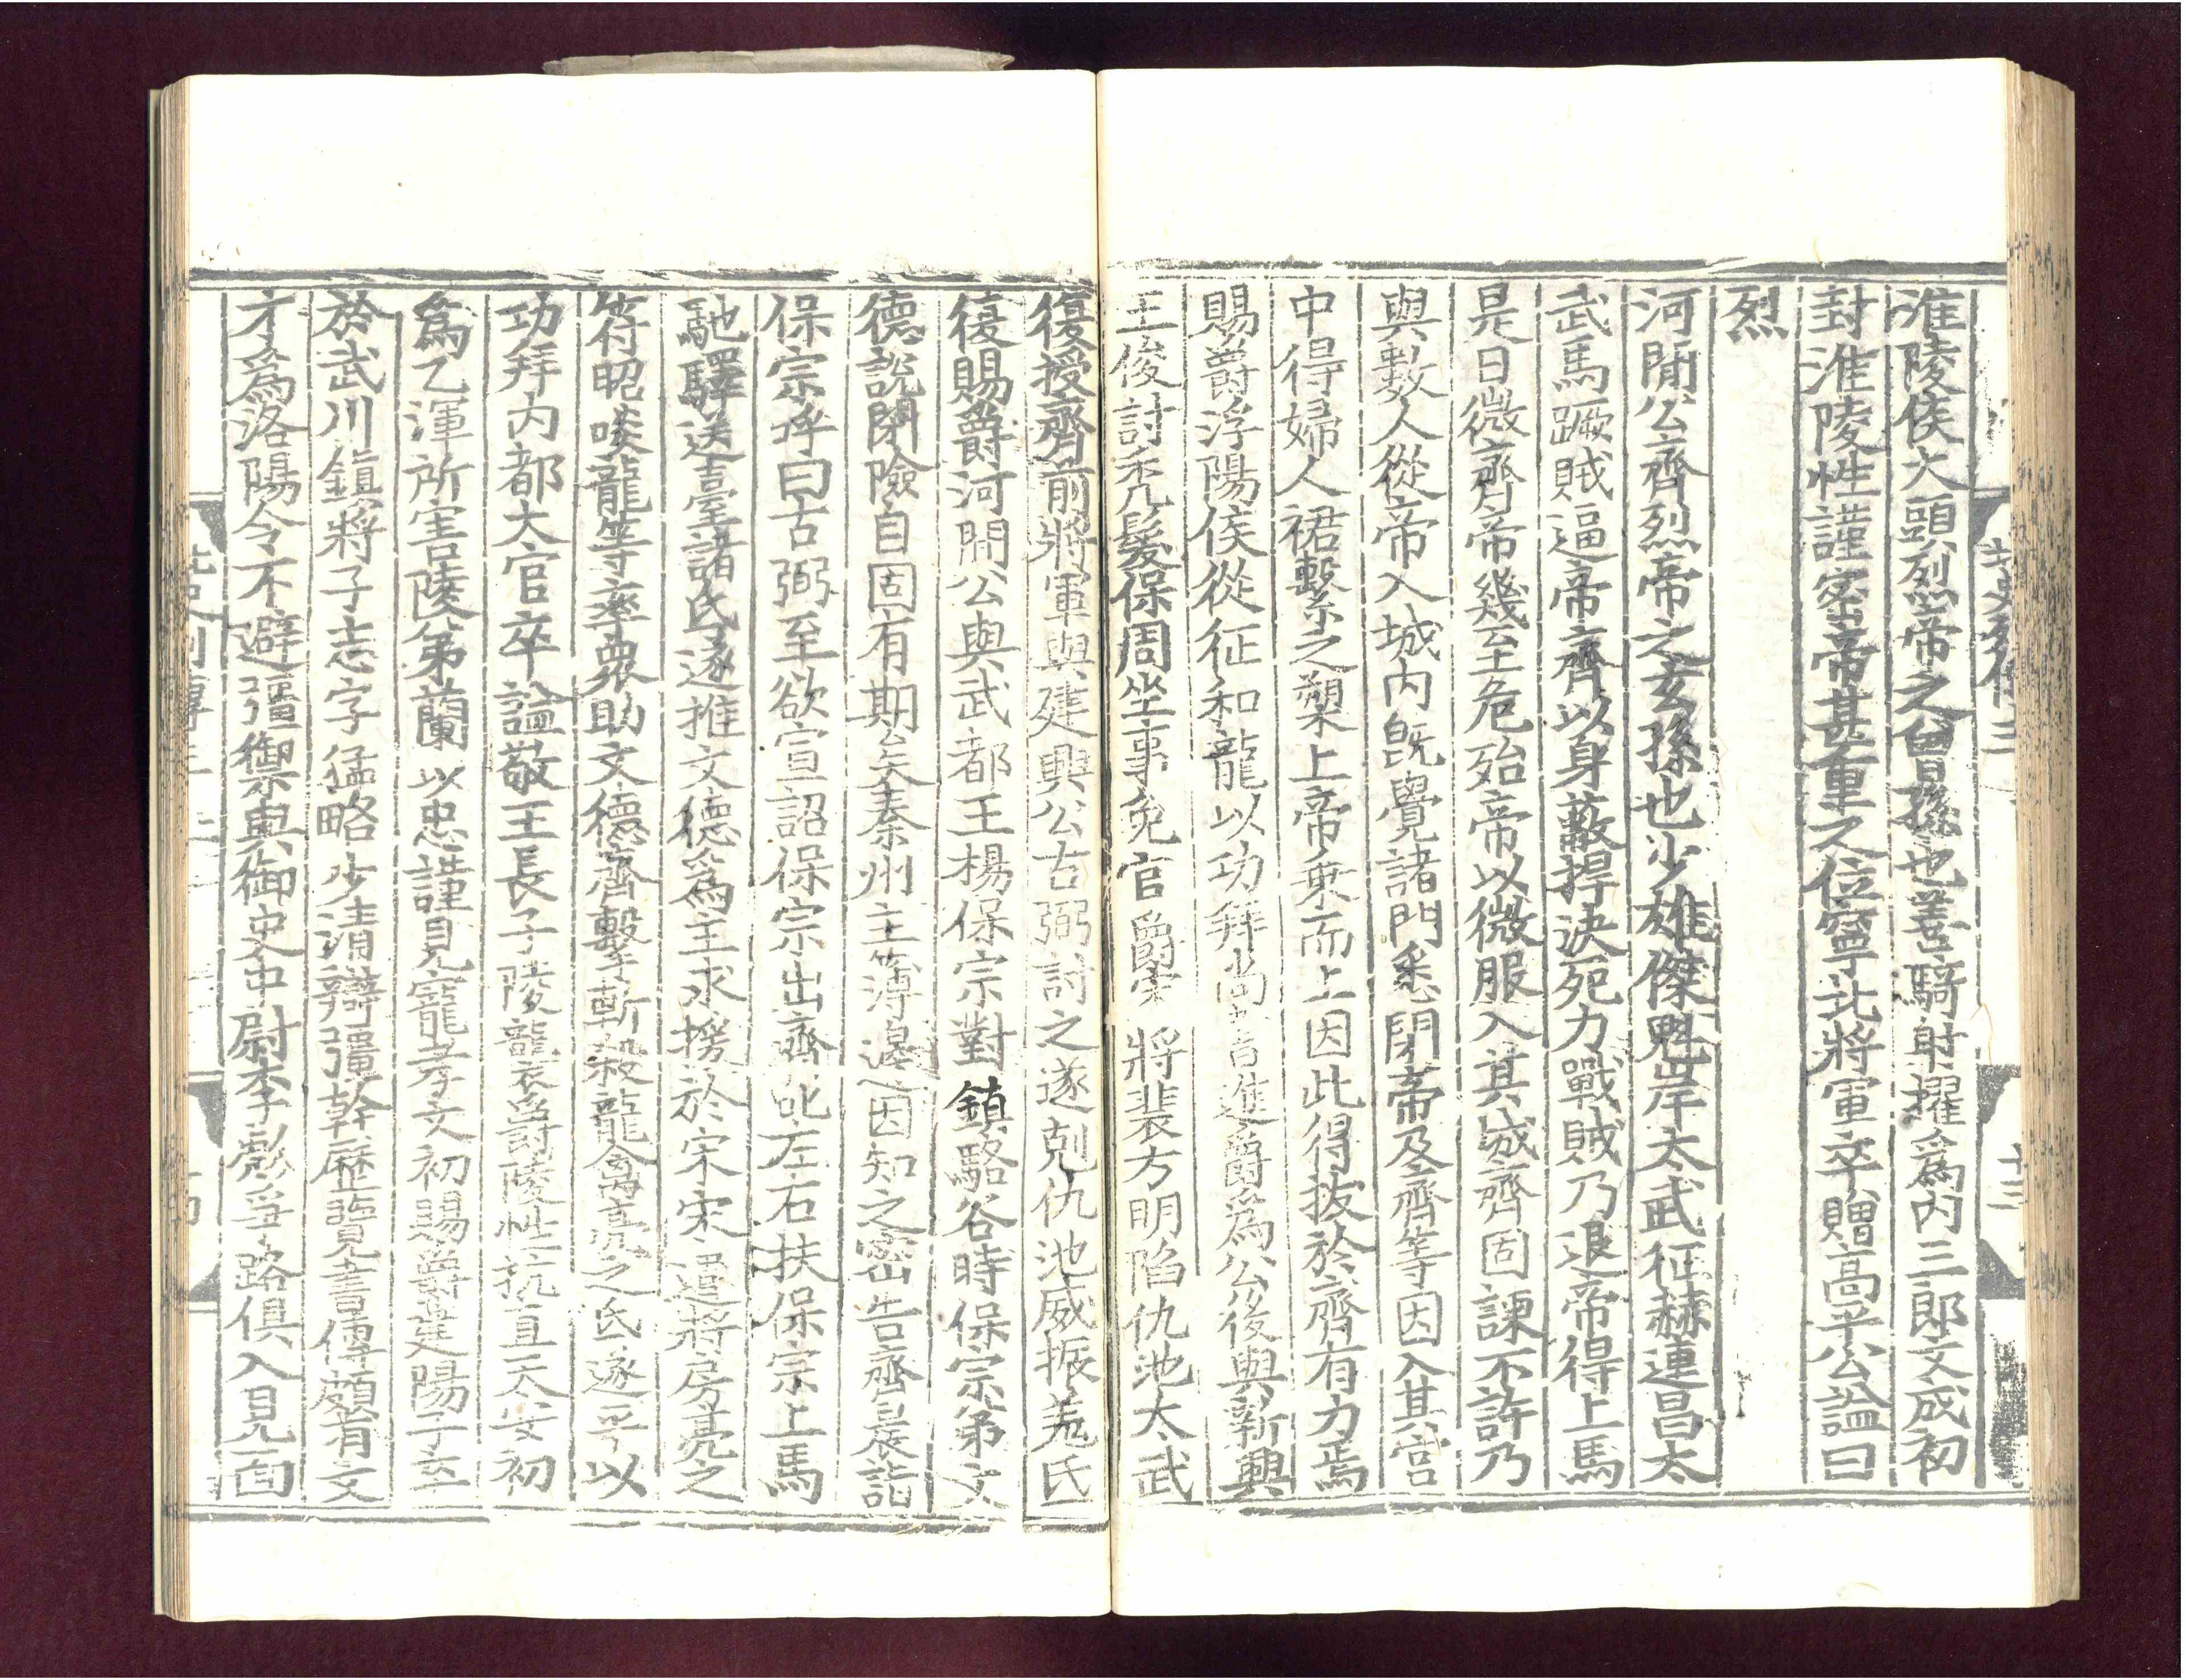 淮陵侯大頭烈帝之曾孫也善騎射擢爲内三郎文成初
封淮陵性謹密帝甚重之位寧北將軍卒贈高平公謚曰
烈
河間公齊烈帝之玄孫也少雄傑魁岸太武征赫連昌太
武馬蹶賊逼帝齊以身蔽捍決死力戰賊乃退帝得上馬
是日微齊帝幾至危殆帝以微服入其城齊固諫不許乃
與數人從帝入城内旣覺諸門悉閉帝及齊等因入其宮
中得婦人裙繫之槊上帝乘而上因此得拔於齊有力焉
賜爵浮陽侯從征和龍以功拜尚書進爵爲公後與新興
王俊討禿髮保周坐事免官爵宋將裴方明陷仇池太武
復授齊前將軍與建興公古弼討之遂剋仇池威振羌氐
復賜爵河間公與武都王楊保宗對鎮駱谷時保宗弟文
德說閉險自固有期矣秦州主簿邊因知之密告齊晨詣
保宗呼曰古弼至欲宣詔保宗出齊叱左右扶保宗上馬
馳驛送臺諸氐遂推文德爲主求援於宋宋遣將房亮之
苻昭啖龍等率衆助文德齊擊斬殺龍禽亮之氐遂平以
功拜内都大官卒謚敬王長子陵襲爵陵性抗直天安初
爲乙渾所害陵弟蘭以忠謹見寵孝文初賜爵建陽子卒
於武川鎮將子志字猛略少清辯彊幹歷覽書傳頗有文
才爲洛陽令不避彊禦與御史中尉李彪爭路俱入見面
北史列傳三
十三